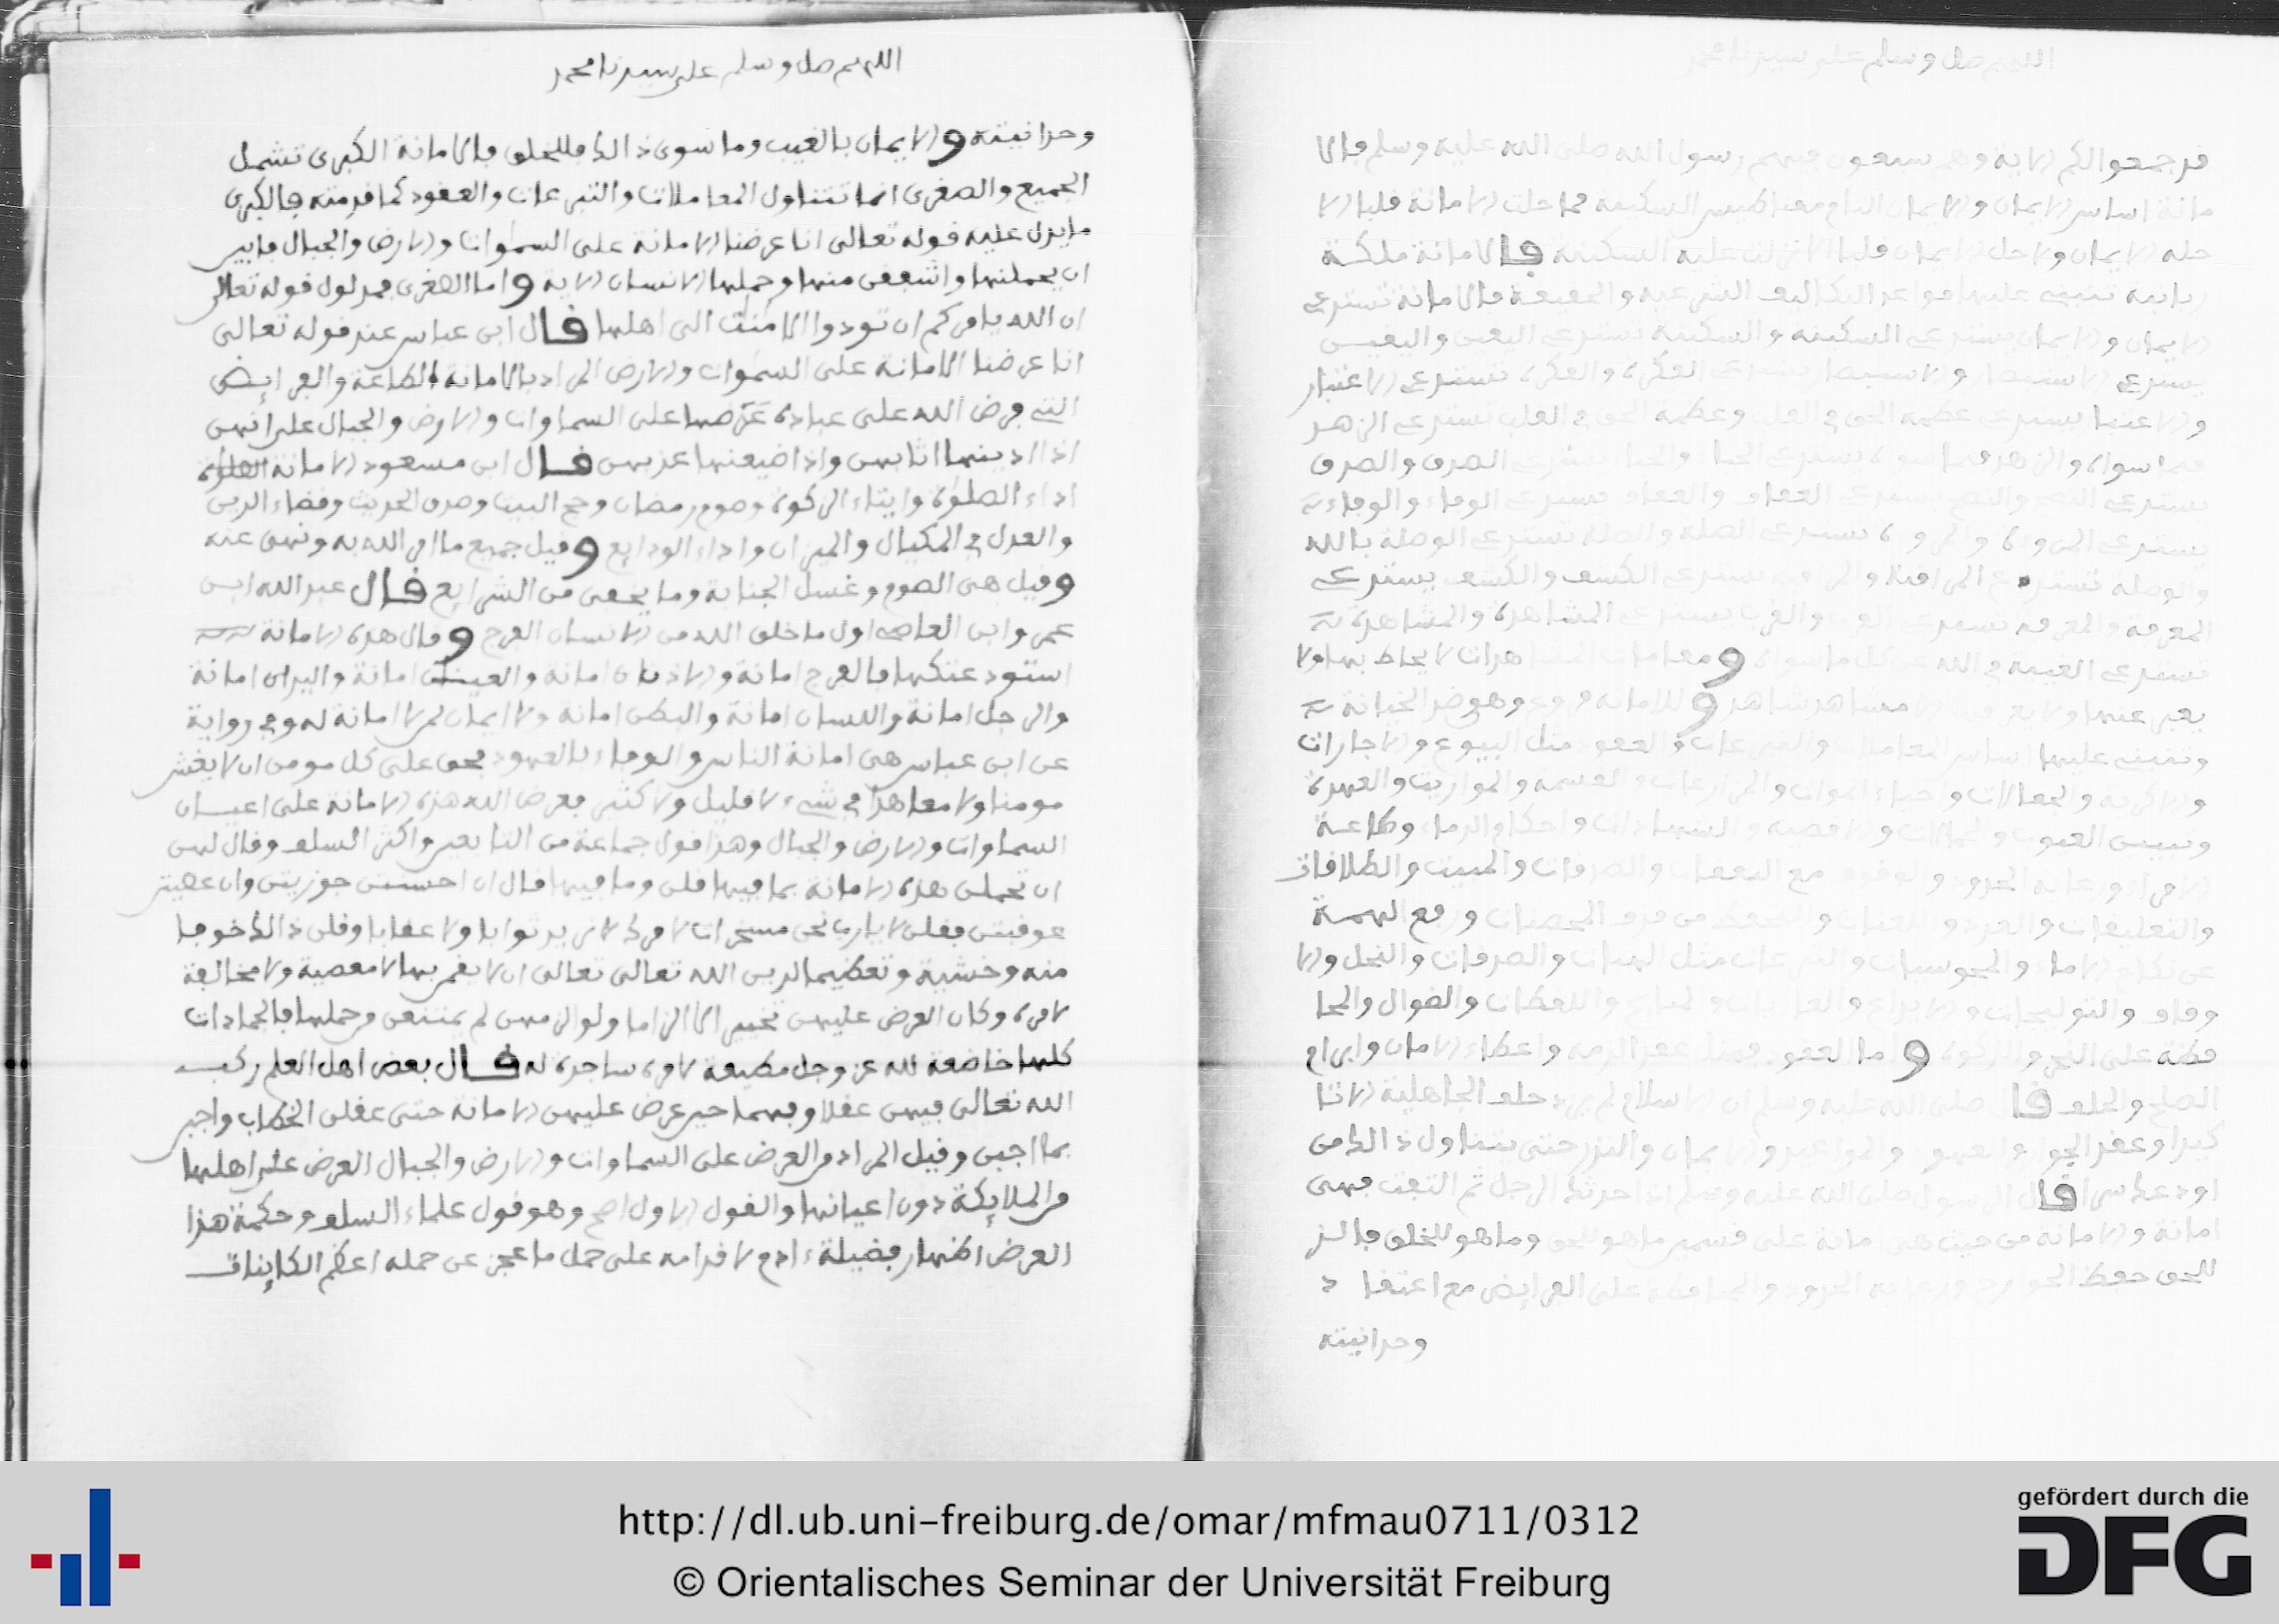 اللهم صل وسلم على سيدنا محمد
فرجعوا لكم الاية وهم سبعون فيهم رسول الله صلى الله عليه وسلم فالا
مانة اساس الايمان والايمان السكينة فما حلت الامانة قلبا الا
حله الايمان ولا حل الايمان قلبا الا نزلت عليه السكينة فالامانة ملكة
ربانية تنبنى عليها قواعد التكاليف الشرعية والحقيقة فالامانة تستدعى
الايمان والايمان يستدعى السكينة والسكينة تستدعى اليقين واليقين
يستدعى الاستبصار والاستبصار يستدعى الفكرة والفكرة تستدعى الاعتبار
والاعتبار يستدعى عظمة الحق فى القلب وعظمة الحق فى القلب تستدعى الزهد
فيما سواه والزهد فيما سواه يستدعى الحياء والحياء يستدعى الصدق والصدق
يستدعى النصح والنصح يستدعى العفاف والعفاف يستدعى الوفاء والوفاء
يستدعى المروة والمروة تستدعى الصلة والصلة تستدعى الوصلة بالله
والوصلة تستدعى المراقبة والمراقبة تستدعى الكشف والكشف يستدعى
المعرفة والمعرفة تستدعى القرب والقرب يستدعى المشاهدة والمشاهدة
تستدعى الغيبة فى الله عن كل ما سواه ومقامات المشاهدات لا يحاط بها ولا
يعبر عنها ولا يعرفها الا مشاهد شاهد وللامانة فروع وهو ضد الخيانة
وتنبنى عليها اساس المعاملات والتبرعات والعقود مثل البيوع والاجارات
والاكرية والجعالات واحياء الموات والمزارعات والقسمة والمواريث والعهدة
وتبيين العيوب والحمالات والاقضية والشهادات واحكام الدماء وطاعة
الامراء ورعاية الحدود والوقوف مع النفقات والصدقات والمبيت والطلاقات
والتعليقات والعدد واللعان والتحفظ من قذف المحصنات ورفع التهمة
عن نكاح الاماء والمجوسيات والتبرعات مثل الهبات والصدقات والنحل والا
وقاف والتوليجات والايداع والعاريات والمنايح واللقطات والضوال والمحا
فظة على النحر والزكوة واما العقود فمثل عقد الذمة واعطاء الامان وابرام
الصلح والحلف قال صلى الله عليه وسلم ان الاسلام لم يزد حلف الجاهلية الا تا
كيدا وعقد الجوار والعهود والمواعيد والايمان والنذر حتى يتناول ذالك من
اودعك سرا قال الرسول صلى الله عليه وسلم اذا حدثك الرجل ثم التفت فهى
امانة والامانة من حيث هى امانة على قسمين ما هو للحق وما هو للخلق فالذى
للحق حفظ الجوارح ورعاية الحدود والمحافظة على الفرايض مع اعتقاد
وحدانيته
اللهم صل وسلم على سيدنا محمد
وحدانيته والايمان بالغيب وما سوى ذالك فللخلق فالامانة الكبرى تشمل
الجميع والصغرى انما تتناول المعاملات والتبرعات والعقود كما قدمته فالكبرى
ما يدل عليه قوله تعالى انا عرضنا الامانة على السموات والارض والجبال فابين
ان يحملنها واشفقن منها وحملها الانسان الاية واما الصغرى فمدلول قوله تعالى
ان الله يامركم ان تودوا الامنت الى اهلها قال ابن عباس عند قوله تعالى
انا عرضنا الامانة على السموات والارض المراد بالامانة الطاعة والفرايض
التى فرض الله على عباده عرضها على السماوات والارض والجبال على انهن
اذا ادينها اثابهن واذا ضيعنها عذبهن قال ابن مسعود الامانة الصلوة
اداء الصلوة وايتاء الزكوة وصوم رمضان وحج البيت وصدق الحديث وقضاء الدين
والعدل فى المكيال والميزان واداء الودايع وقيل جميع ما امر الله به ونهى عنه
وقيل هى الصوم وغسل الجنابة وما يخفى من الشرايع قال عبد الله ابن
عمر وابن العاصى اول ما خلق الله من الانسان الفرج وقال هذه الامانة
استودعتكها فالفرج امانة والاذنان امانة والعينان امانة واليدان امانة
والرجل امانة واللسان امانة والبطن امانة ولا ايمان لمن لا امانة له وفى رواية
عن ابن عباس هى امانة الناس والوفاء بالعهود فحق على كل مومن ان لا يغش
مومنا ولا معاهدا فى شىء لا قليل ولا كثير فعرض الله هذه الامانة على اعيان
السماوات والارض والجبال وهذا قول جماعة من التابعين واكثر السلف وقال لهن
ان تحملن هذه الامانة بما فيها قلن وما فيها قال ان احسنتن جوزيتن وان عصيتن
عوقبتن فقلن لا يا رب نحن مسخرات لامرك لا نريد ثوابا ولا عقابا وقلن ذالك خوفا
منه وخشية وتعظيما لدين الله تعالى تعالى ان لا يقمن بها لا معصية ولا مخالفة
لامره وكان العرض عليهن تخييرا لا الزاما ولو الزمهن لم يمتنعن وحملها فالجمادات
كلها خاضعة لله عز وجل مطيعة لامره ساجدة له قال بعض اهل العلم ركب
الله تعالى فيهن عقلا وفهما حين عرض عليهن الامانة حتى عقلن الخطاب واجبن
بما اجبن وقيل المراد والعرض على السماوات والارض والجبال العرض على اهلها
من الملايكة دون اعيانها والقول الاول اصح وهو قول علماء السلف وحكمة هذا
العرض اظهار فضيلة ءادم لاقدامه على حمل ما عجز عن حمله اعظم الكاينات
http://dl.ub.uni-freiburg.de/omar/mfmau0711/0312
© Orientalisches Seminar der Universität Freiburg
gefördert durch die
DFG